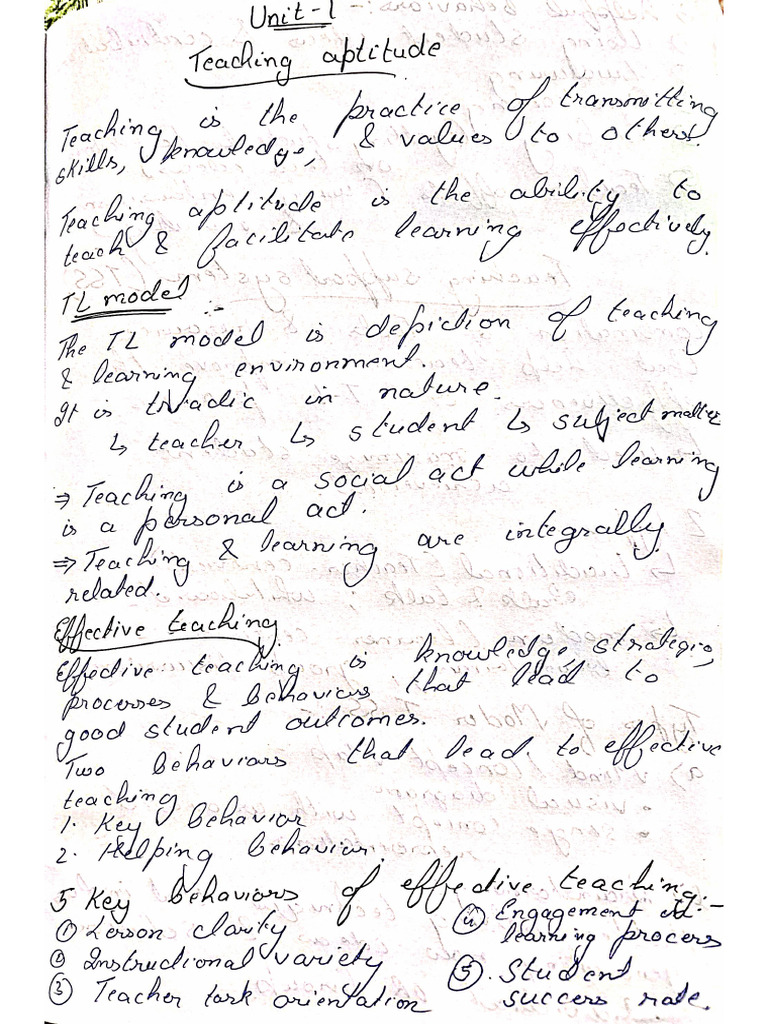 Unit-1
Teaching aptitude
Teaching is the practice of transmitting
skills, knowledge, & values to others.
Teaching aptitude is the ability to
teach & facilitate learning effectively.
TL model :-
The TL model is depiction of teaching
& learning environment.
It is triadic in nature.
↳ teacher ↳ student ↳ subject matter
⇒ Teaching is a social act while learning
is a personal act.
⇒ Teaching & learning are integrally
related.
Effective teaching
Effective teaching is knowledge, strategies,
processes & behaviors that lead to
good student outcomes.
Two behaviors that lead to effective
teaching
1. Key behavior
2. Helping behavior.
5 Key behaviors of effective teaching:-
① Lesson clarity
② Instructional variety
③ Teacher task orientation
④ Engagement in
learning process
⑤. Student
success rate.